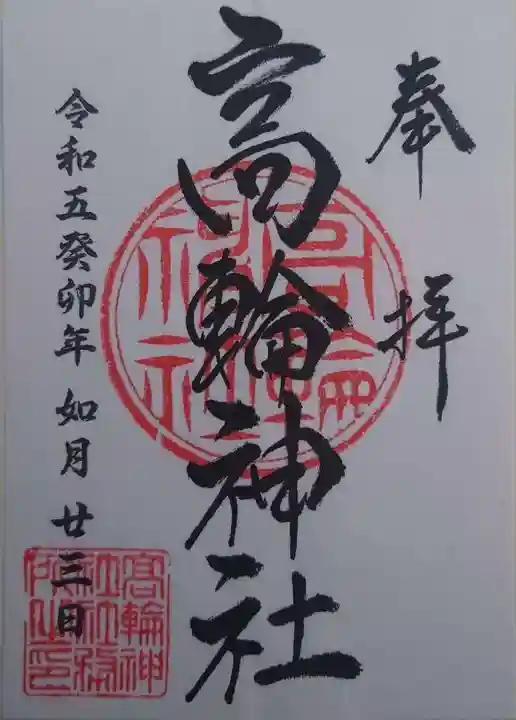 奉拝
高輪神社
令和五癸卯年 如月 廿三日
高輪神社
高輪神社社務所之印